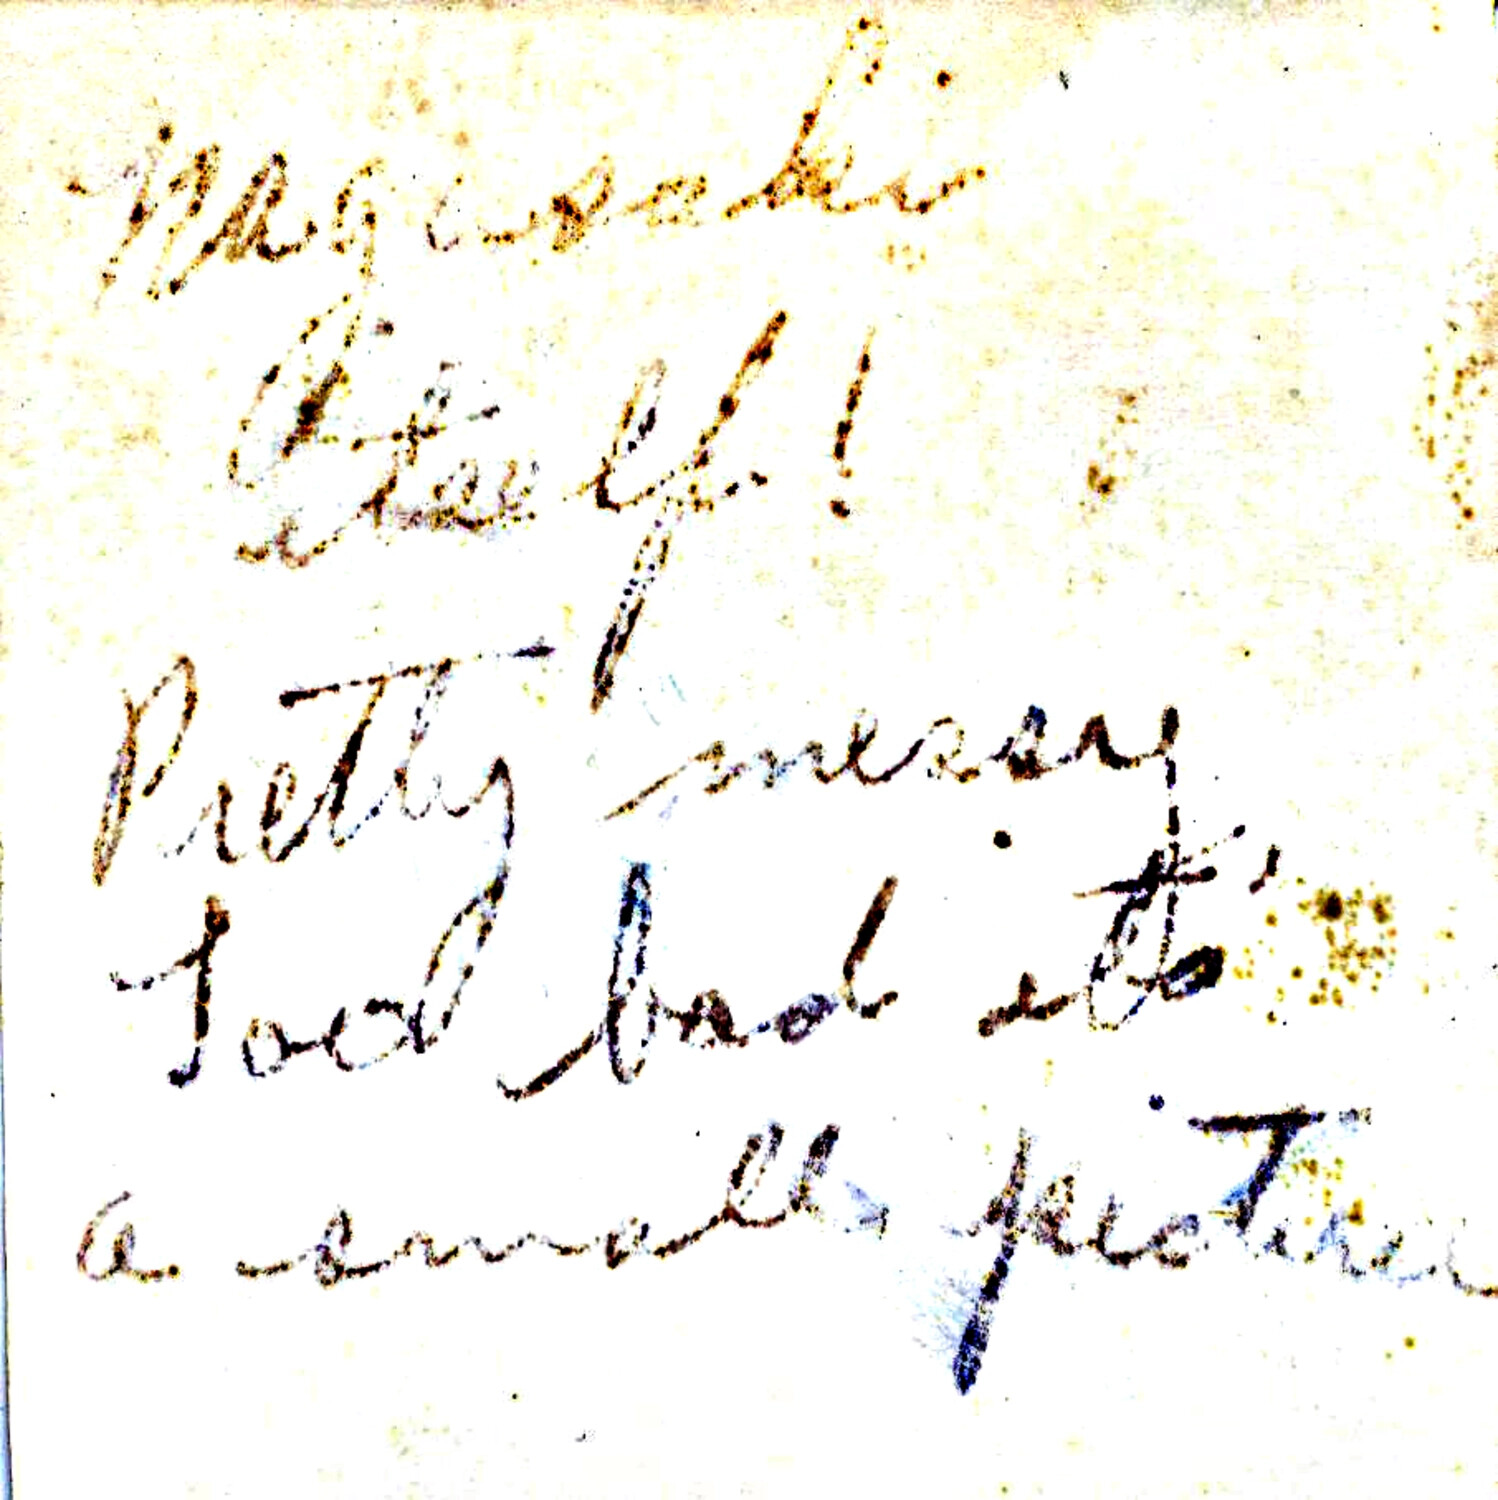 Nagasaki
itself!
Pretty messy
Too bad it's
a small picture